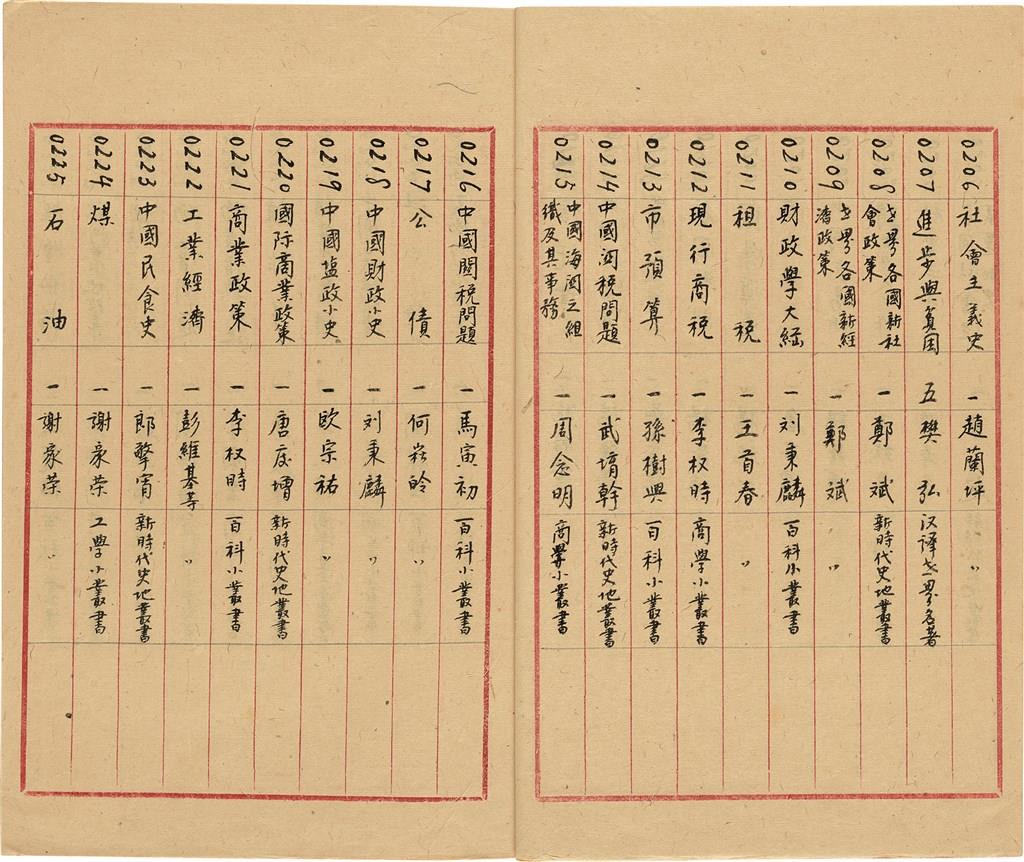 0206 社會主義史 一 趙蘭坪 〃
0207 進步與貧困 五 樊弘 汉譯世界名著
0208 世界各國新社會政策 一 鄭斌 新時代史地叢書
0209 世界各國新經濟政策 一 鄭斌 〃
0210 財政學大綱 一 刘秉麟 百科小叢書
0211 租税 一 王首春 〃
0212 現行商税 一 李权時 商學小叢書
0213 市預算 一 孫樹興 百科小叢書
0214 中國関税問題 一 武堉幹 新時代史地叢書
0215 中國海関之組織及其事務 一 周念明 商學小叢書
0216 中國関税問題 一 馬寅初 百科小叢書
0217 公債 一 何崧龄 〃
0218 中國財政小史 一 刘秉麟 〃
0219 中國塩政小史 一 欧宗祐 〃
0220 國际商業政策 一 唐庆增 新時代史地叢書
0221 商業政策 一 李权時 百科小叢書
0222 工業經濟 一 彭維基等 〃
0223 中國民食史 一 郎擎霄 新時代史地叢書
0224 煤 一 謝家荣 工學小叢書
0225 石油 一 謝家荣 〃